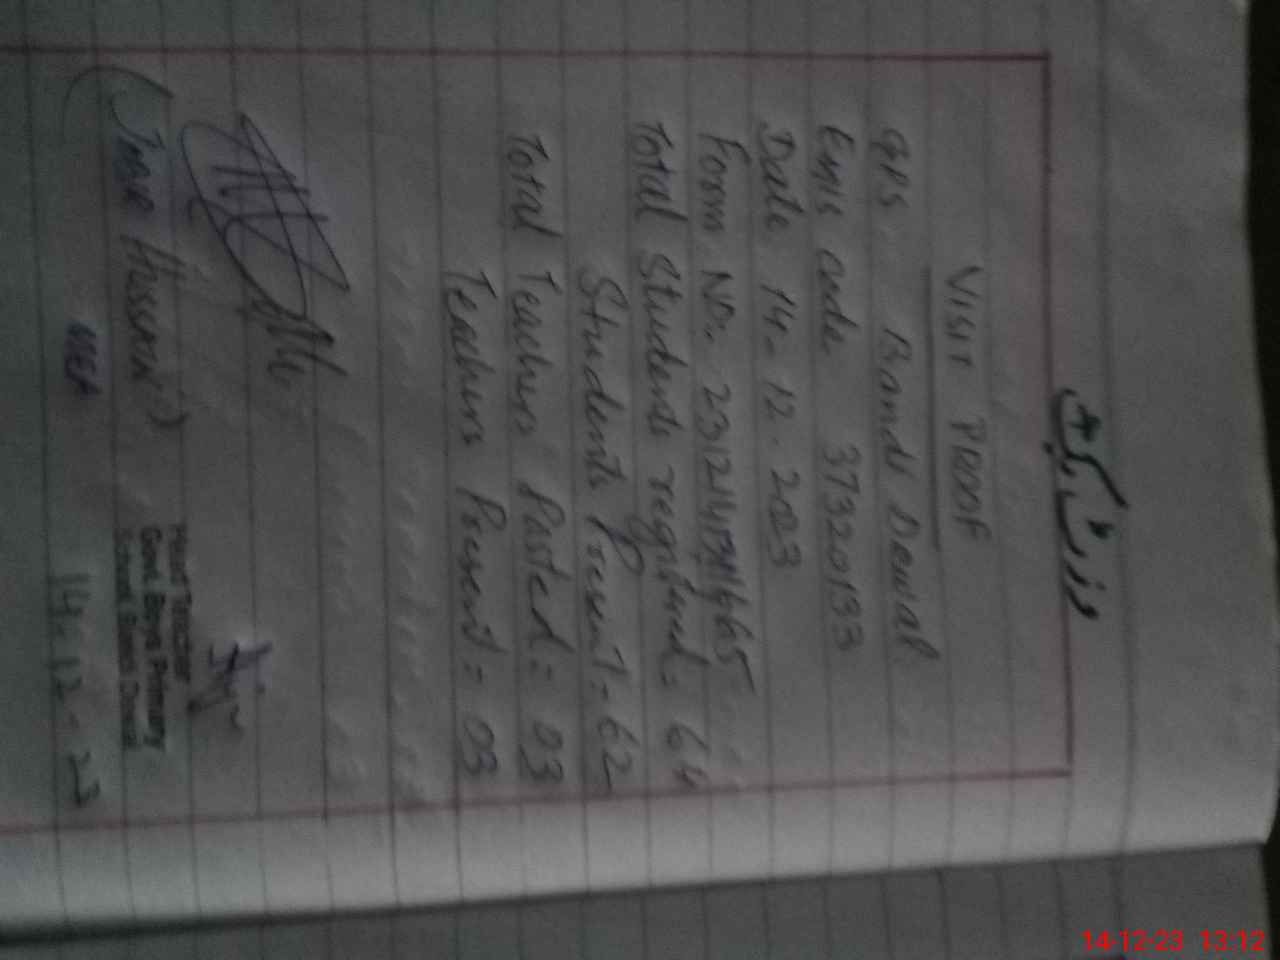 وزٹ بک
VISIT PROOF
GPS Bandi Dewal
Emis code 37320133
Date 14-12-2023
Form No:
Total Students registered = 64
Students Present = 62
Total Teachers Posted = 03
Teachers Present = 03
Hussain)
Head Teacher
Govt. Boys Primary
School Bandi Dewal
14-12-23
14-12-23 13:12